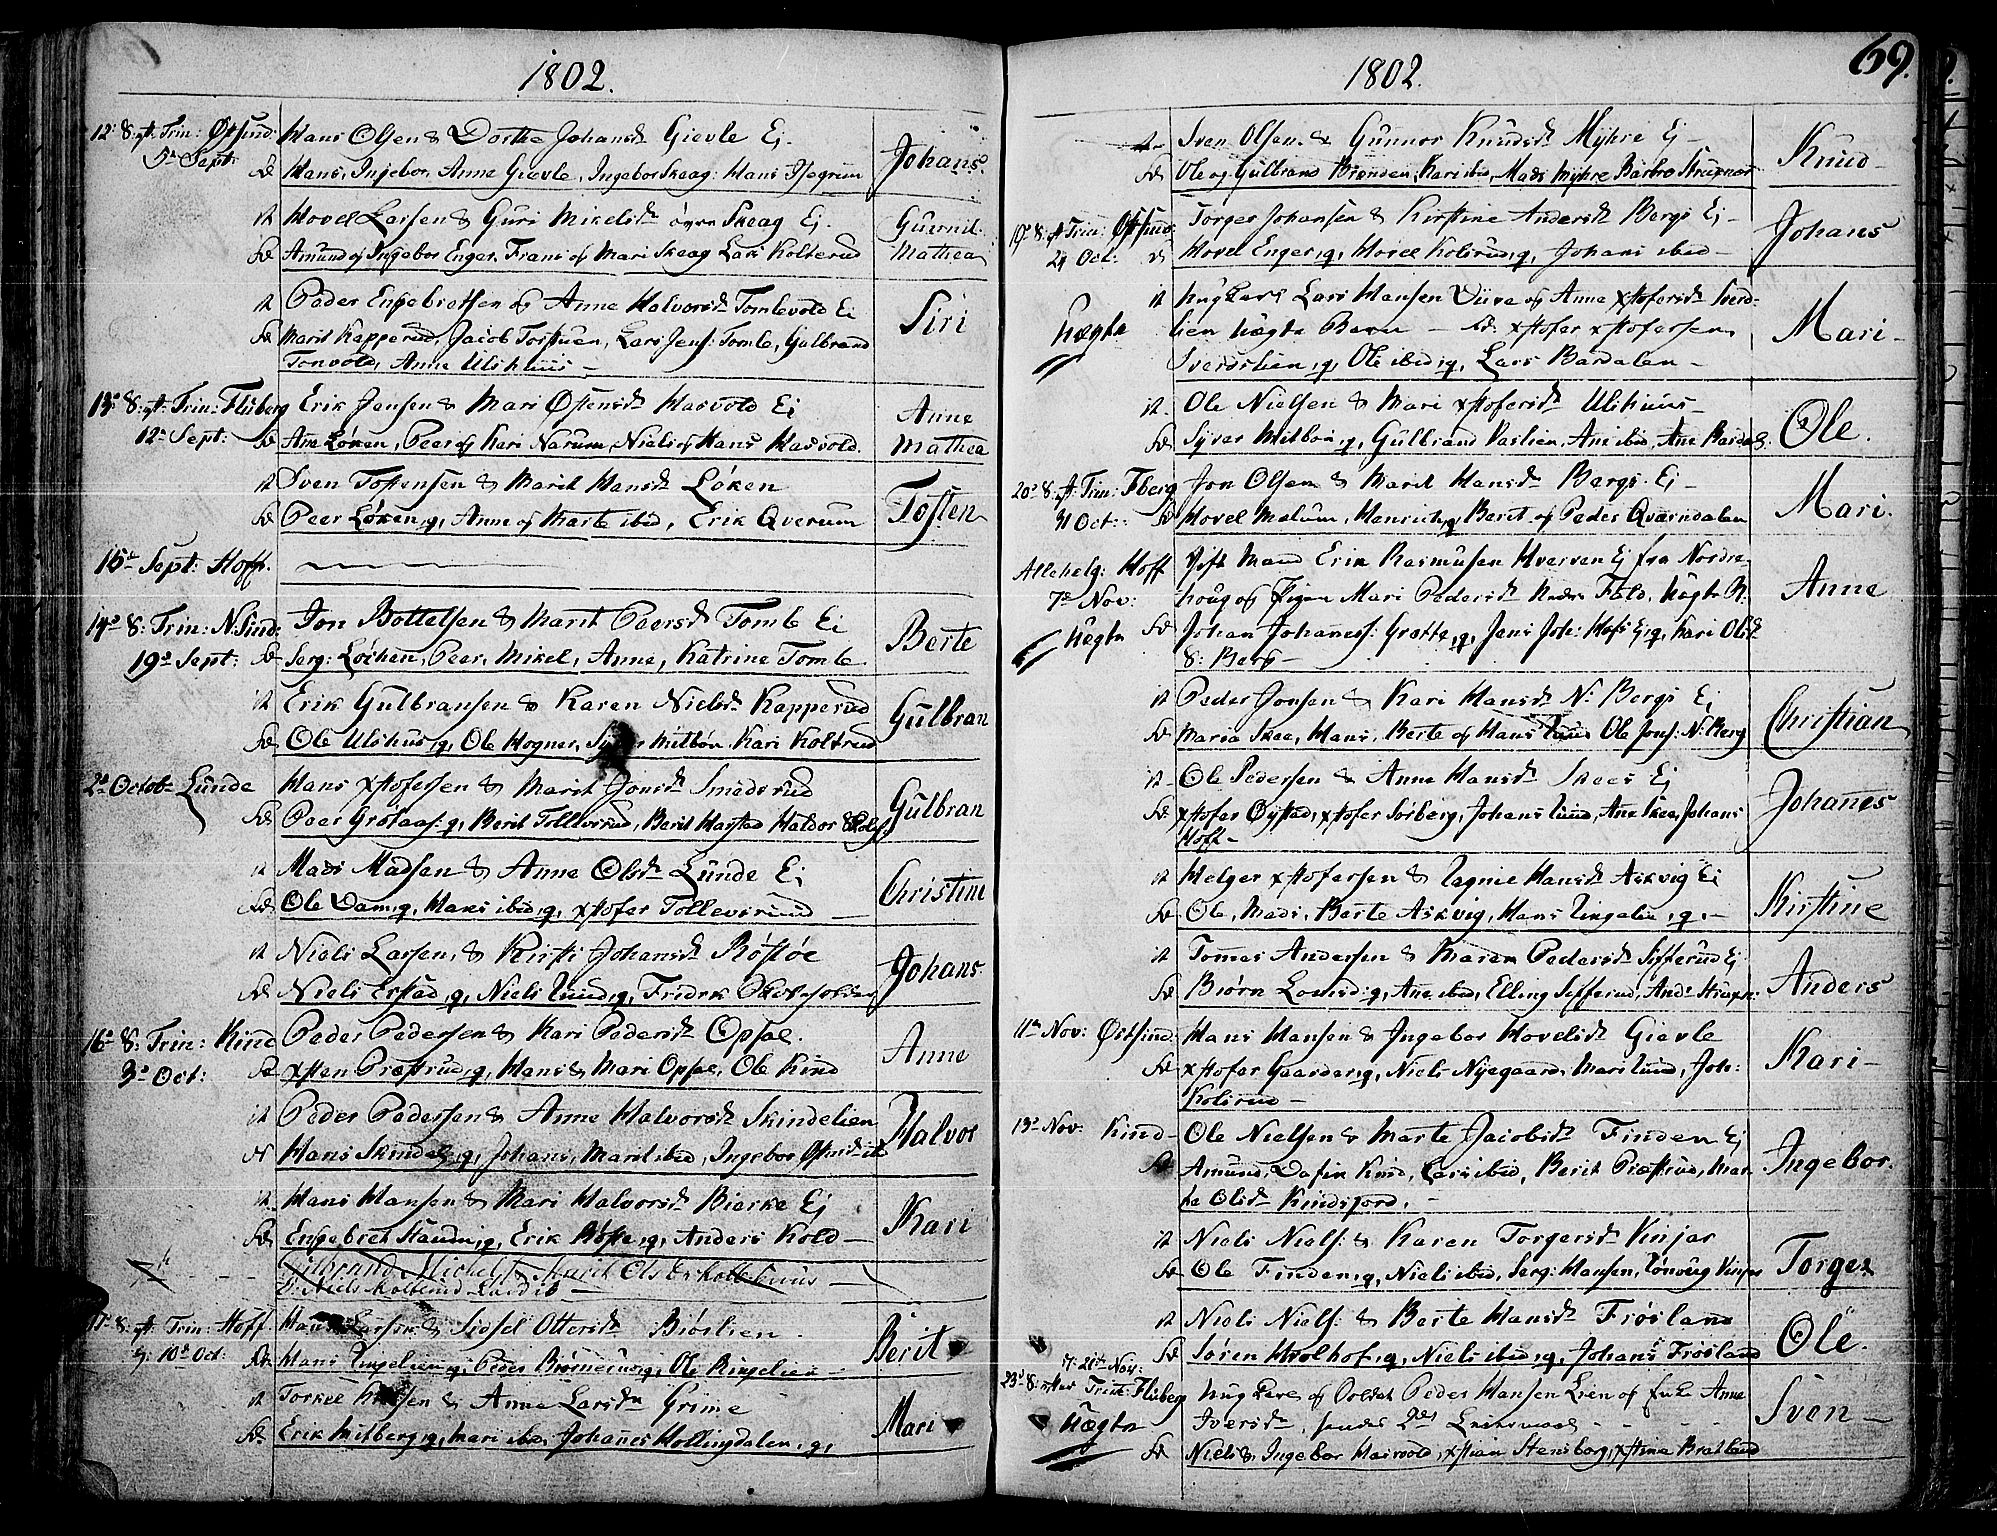 1802.
12: S: p: Trin: Østsind: Hans Olsen & Dorthe Johansd: Gievle Ej.
5te Sept: Fd: Hans, Ingebor, Anne Gievle, Ingebor Skeag: Hans Isegrim
Johans.
it Hovel Larsen & Guri Mikelsd: øvre Skeag Ej.
Fd: Amund og Ingebor Enger, Frans og Mari Skeag Lars Kolterud
Guernil. Mathea
it Peder Engebretsen og Anne Halvorsd: Tomlevold Ei
Fd: Marit Kapperud, Jacob Torstuen, Lars Jens: Tomle, Gulbrand
Tonvold, Anne Ulshuus -
Siri
13: S: p: Trin: Fluberg Erik Jensen & Mari Østensd: Hasvold Ej
12te Sept: Fd: Ane Løken, Peer og Kari Narum, Niels og Hans Hasvold.
Anne Mathea
it Sven Tostensen & Marit Hansd: Løken
Fd: Peer Løken, g, Anne og Marte ibid, Erik Qverum
Tosten
15de Sept: Hoff.
14de S: Trin: N. Sind: Jon Bottelsen & Marit Peersd: Tomle Ei
19de Sept: Fd: Serg: Løchen, Peer, Mikel, Anne, Katrine Tomle
Berte
it Erik Gulbransen & Karen Nielsd: Kapperud
Fd: Ole Ulshus, g, Ole Hogner, Syver Mitbøn, Kari Koltrud
Gulbran
2de Octob: Lunde Hans xstofersen & Marit Jonsd: Smedsrud
Fd: Peer Grotaas: g, Berit Tollevsrud, Berit Harstad Haldor
Gulbran
it Mads Madsen & Anne Olsd: Lunde Ej
Fd: Ole Dam, g, Hans ibid, g, xstofer Tollevsrud -
Christine
it Niels Larsen & Kirsti Johansd: Røstøe
Fd: Niels Erstad, g, Niels Lund, g, Fridrk
Johans.
16de S: Trin: Kind Peder Pedersen & Kari Pedersd: Opsal.
3de Oct: Fd: xsten Præstrud, g, Hans & Mari Opsal, Ole Kind
Anne
it Peder Pedersen & Anne Halvorsd: Skindelien
Fd: Hans Skindel: g, Johans, Marit ibid, Ingebor
Halvor
it Hans Hansen & Mari Halvorsd: Bierke Ej
Fd: Engebret Haug, g, Erik Røste, g, Anders Kold -
Kari
Gulbrand Michels: & Marit Olsd:
17: S: p: Trin: Hoff Hans Larsen & Sidsel Ottersd: Biøslien.
d: 10de Oct: Fd: Hans Lingelien g, Peder g, Ole Ringelien -
Berit
it Torkel & Anne Larsd: Grime
Fd: Erik Mitberg, g, Mari ibid, Johanes Hollingdalen, g,
Mari
1802.
69.
it Sven Olsen & Gunnor Knudsd: Myhre Ej -
Fd: Ole og Gulbrand Brenden, Kari ibid, Mads Myhre Barbro Strupner
Knud -
19: S: p: Trin: Østsind: Torger Johansen & Kirstine Andersd: Bergs Ej -
24 Oct: Fd: Hovel Enger, g, Hovel Kolsrud, g, Johans ibid -
Johans
it Lars Hansen og Anne xstofersd: Sverds-
Uægte lien uægte Barn - Fd: xstofer xstofersen
Sverdslien, g, Ole ibid, g, Lars Bardalen -
Mari -
it Ole Nielsen & Mari xstofersd: Ulshuus -
Fd: Syver Mitbøn, g, Gulbrand Vaslien, Ane ibid, Ane Bardal:
Ole.
20de S: p: Trin: Fberg Jon Olsen & Marit Hansd: Bergs. Ej -
31 Oct: Fd: Hovel Melum, Henrich, g, Berit og Peder Qværndalen
Mari.
Allehelg: Hoff Gift Mand Erik Rasmusen Hverven Ej fra Nordre-
7de Nov: houg og Pigen Mari Pedersd: Nedre Fald. uægte B.
Uægte Fd: Johan Johanes: Grøtte, g, Jens Joh: Hofs Ej, g, Kari Olsd:
S: Berg -
Anne
it Peder Jonsen & Kari Hansd: N. Bergs Ej
Fd: Maria Skee, Hans, Berte og Hans Lund Ole Jons: N: Berg
Christian
it Ole Pedersen & Anne Hansd: Skees Ej
Fd: xstofer Øystad, xstofer Sørberg, Johans Lund, Ane Skee, Johans
Hoff -
Johanes
it Helger xstofersen & Lagnie Hansd: Askvig Ei
Fd: Ole, Mads, Berte Askvig, Hans Lingelie, g, -
Kirstine
it Tomes Andersen & Maren Pedersd: Sifferud Ej
Fd: Biørn Lomsd: g, Ane ibid, Elling Sefferud, And: Strupn:
Anders
11te Nov: Østsind: Hans Hansen & Ingebor Hovelsd: Gievle
Fd: xstofer Gaarder, g, Niels Nyegaard, Mari Lund, Joh:
Kolsrud -
Kari -
13de Nov: Kind - Ole Nielsen & Marte Jacobsd: Finden Ej
Fd: Amund, Dafin Kind, Lars ibid, Berit Præstrud, Mar-
te Olsd: Kindsjord. -
Ingebor.
it Niels Niels: & Karen Torgersd: Kinjar
Fd: Ole Finden, g, Niels ibid, Serg: Hansen, Lønoug
Torger
it Niels Niels: & Berte Hansd: Frøsland
Fd: Søren Hvalhof, g, Niels ibid, g, Johans Frøsland
Ole.
d: 21de Nov:
23de S: efter Trin: Fluberg Ung Karl og Soldat Peder Hansen Lien og Anne
Uægte Iversd:
Fd: Niels & Ingebor Hasvold, xstian Stensborg, xstine Bratland
Sven -